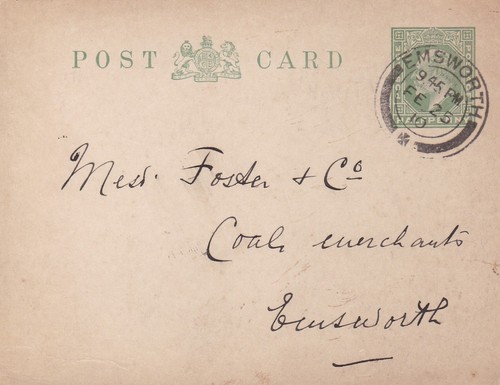 POST CARD
EMSWORTH
9 45 PM
FE 23
10
HALFPENNY
Messrs. Foster & Co
Coal merchants
Emsworth